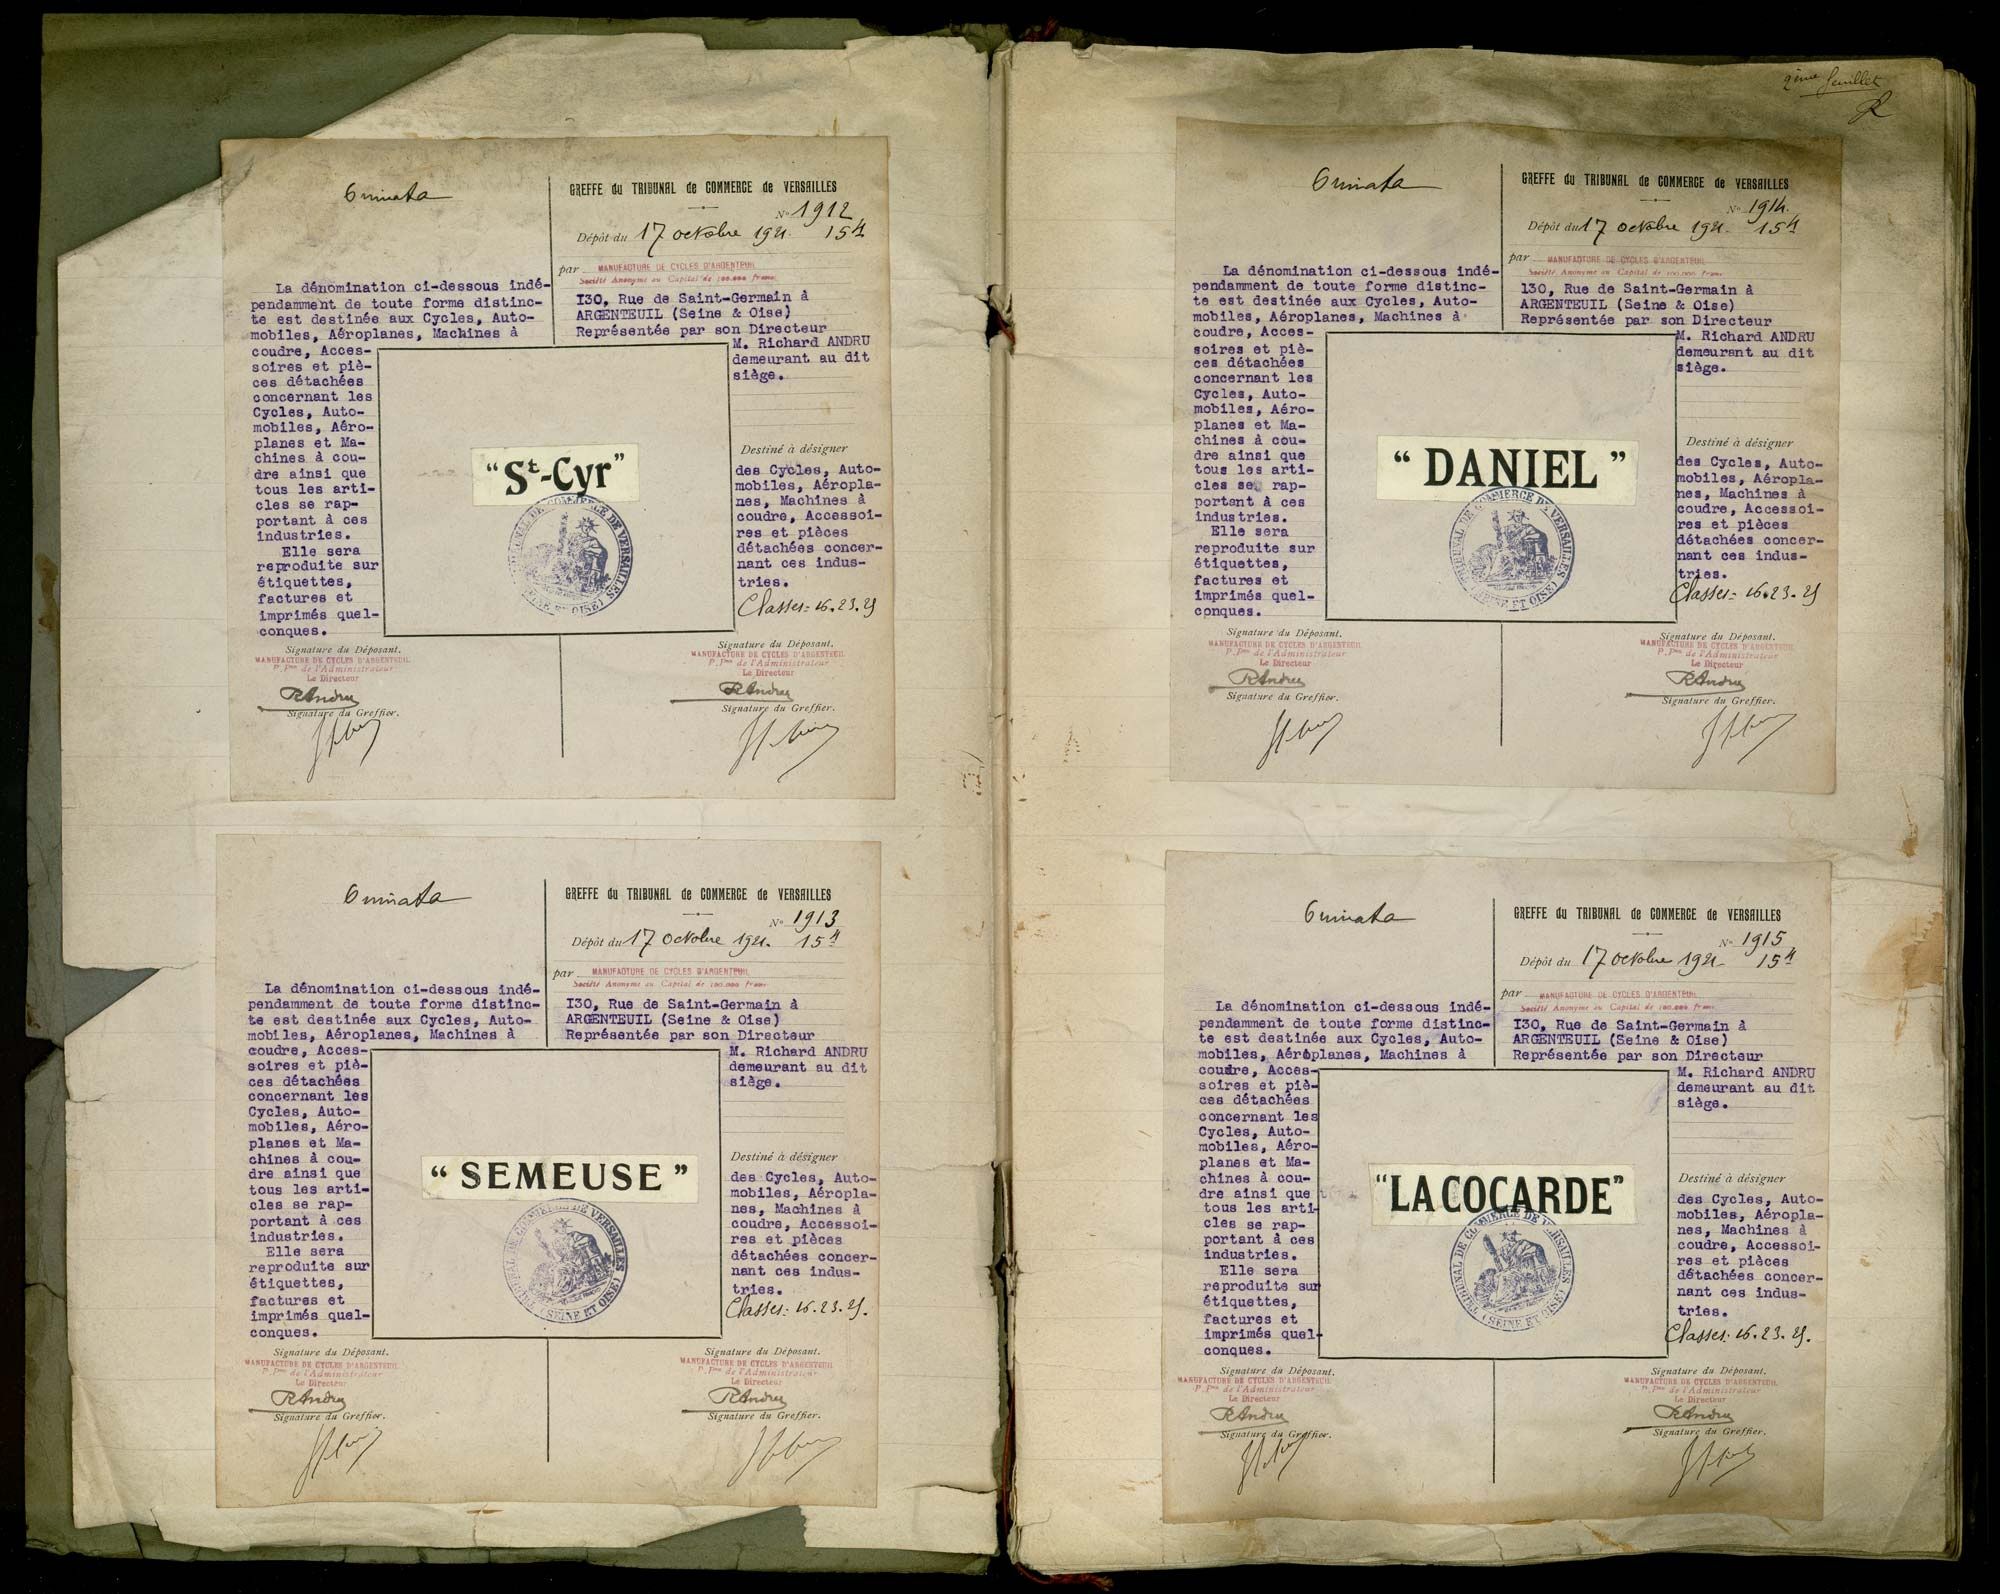 GREFFE du TRIBUNAL de COMMERCE de VERSAILLES
N° 1912
Dépôt du 17 octobre 1921. 15h
par MANUFACTURE DE CYCLES D'ARGENTEUIL
Société Anonyme au Capital de 100.000 francs
I30, Rue de Saint-Germain à
ARGENTEUIL (Seine & Oise)
Représentée par son Directeur
M. Richard ANDRU
demeurant au dit
siège.
La dénomination ci-dessous indé-
pendamment de toute forme distinc-
te est destinée aux Cycles, Auto-
mobiles, Aéroplanes, Machines à
coudre, Acces-
soires et piè-
ces détachées
concernant les
Cycles, Auto-
mobiles, Aéro-
planes et Ma-
chines à cou-
dre ainsi que
tous les arti-
cles se rap-
portant à ces
industries.
Elle sera
reproduite sur
étiquettes,
factures et
imprimés quel-
conques.
"St-Cyr"
TRIBUNAL DE COMMERCE DE VERSAILLES (SEINE ET OISE)
Destiné à désigner
des Cycles, Auto-
mobiles, Aéropla-
nes, Machines à
coudre, Accessoi-
res et pièces
détachées concer-
nant ces indus-
tries.
Classes: 16.23.25
Signature du Déposant.
MANUFACTURE DE CYCLES D'ARGENTEUIL
P. Pon de l'Administrateur
Le Directeur
RAndru
Signature du Greffier.
Signature du Déposant.
MANUFACTURE DE CYCLES D'ARGENTEUIL
P. Pon de l'Administrateur
Le Directeur
RAndru
Signature du Greffier.
GREFFE du TRIBUNAL de COMMERCE de VERSAILLES
N° 1913
Dépôt du 17 octobre 1921. 15h
par MANUFACTURE DE CYCLES D'ARGENTEUIL
Société Anonyme au Capital de 100.000 francs
I30, Rue de Saint-Germain à
ARGENTEUIL (Seine & Oise)
Représentée par son Directeur
M. Richard ANDRU
demeurant au dit
siège.
La dénomination ci-dessous indé-
pendamment de toute forme distinc-
te est destinée aux Cycles, Auto-
mobiles, Aéroplanes, Machines à
coudre, Acces-
soires et piè-
ces détachées
concernant les
Cycles, Auto-
mobiles, Aéro-
planes et Ma-
chines à cou-
dre ainsi que
tous les arti-
cles se rap-
portant à ces
industries.
Elle sera
reproduite sur
étiquettes,
factures et
imprimés quel-
conques.
"SEMEUSE"
TRIBUNAL DE COMMERCE DE VERSAILLES (SEINE ET OISE)
Destiné à désigner
des Cycles, Auto-
mobiles, Aéropla-
nes, Machines à
coudre, Accessoi-
res et pièces
détachées concer-
nant ces indus-
tries.
Classes: 16.23.25.
Signature du Déposant.
MANUFACTURE DE CYCLES D'ARGENTEUIL
P. Pon de l'Administrateur
Le Directeur
RAndru
Signature du Greffier.
Signature du Déposant.
MANUFACTURE DE CYCLES D'ARGENTEUIL
P. Pon de l'Administrateur
Le Directeur
RAndru
Signature du Greffier.
2ème feuillet
GREFFE du TRIBUNAL de COMMERCE de VERSAILLES
N° 1914.
Dépôt du 17 octobre 1921. 15h
par MANUFACTURE DE CYCLES D'ARGENTEUIL
Société Anonyme au Capital de 100.000 francs
130, Rue de Saint-Germain à
ARGENTEUIL (Seine & Oise)
Représentée par son Directeur
M. Richard ANDRU
demeurant au dit
siège.
La dénomination ci-dessous indé-
pendamment de toute forme distinc-
te est destinée aux Cycles, Auto-
mobiles, Aéroplanes, Machines à
coudre, Acces-
soires et piè-
ces détachées
concernant les
Cycles, Auto-
mobiles, Aéro-
planes et Ma-
chines à cou-
dre ainsi que
tous les arti-
cles se rap-
portant à ces
industries.
Elle sera
reproduite sur
étiquettes,
factures et
imprimés quel-
conques.
"DANIEL"
TRIBUNAL DE COMMERCE DE VERSAILLES (SEINE ET OISE)
Destiné à désigner
des Cycles, Auto-
mobiles, Aéropla-
nes, Machines à
coudre, Accessoi-
res et pièces
détachées concer-
nant ces indus-
tries.
Classes: 16.23.25
Signature du Déposant.
MANUFACTURE DE CYCLES D'ARGENTEUIL
P. Pon de l'Administrateur
Le Directeur
RAndru
Signature du Greffier.
Signature du Déposant.
MANUFACTURE DE CYCLES D'ARGENTEUIL
P. Pon de l'Administrateur
Le Directeur
RAndru
Signature du Greffier.
GREFFE du TRIBUNAL de COMMERCE de VERSAILLES
N° 1915
Dépôt du 17 octobre 1921. 15h
par MANUFACTURE DE CYCLES D'ARGENTEUIL
Société Anonyme au Capital de 100.000 francs
I30, Rue de Saint-Germain à
ARGENTEUIL (Seine & Oise)
Représentée par son Directeur
M. Richard ANDRU
demeurant au dit
siège.
La dénomination ci-dessous indé-
pendamment de toute forme distinc-
te est destinée aux Cycles, Auto-
mobiles, Aéroplanes, Machines à
coudre, Acces-
soires et piè-
ces détachées
concernant les
Cycles, Auto-
mobiles, Aéro-
planes et Ma-
chines à cou-
dre ainsi que
tous les arti-
cles se rap-
portant à ces
industries.
Elle sera
reproduite sur
étiquettes,
factures et
imprimés quel-
conques.
"LA COCARDE"
TRIBUNAL DE COMMERCE DE VERSAILLES (SEINE ET OISE)
Destiné à désigner
des Cycles, Auto-
mobiles, Aéropla-
nes, Machines à
coudre, Accessoi-
res et pièces
détachées concer-
nant ces indus-
tries.
Classes: 16.23.25.
Signature du Déposant.
MANUFACTURE DE CYCLES D'ARGENTEUIL
P. Pon de l'Administrateur
Le Directeur
RAndru
Signature du Greffier.
Signature du Déposant.
MANUFACTURE DE CYCLES D'ARGENTEUIL
P. Pon de l'Administrateur
Le Directeur
RAndru
Signature du Greffier.